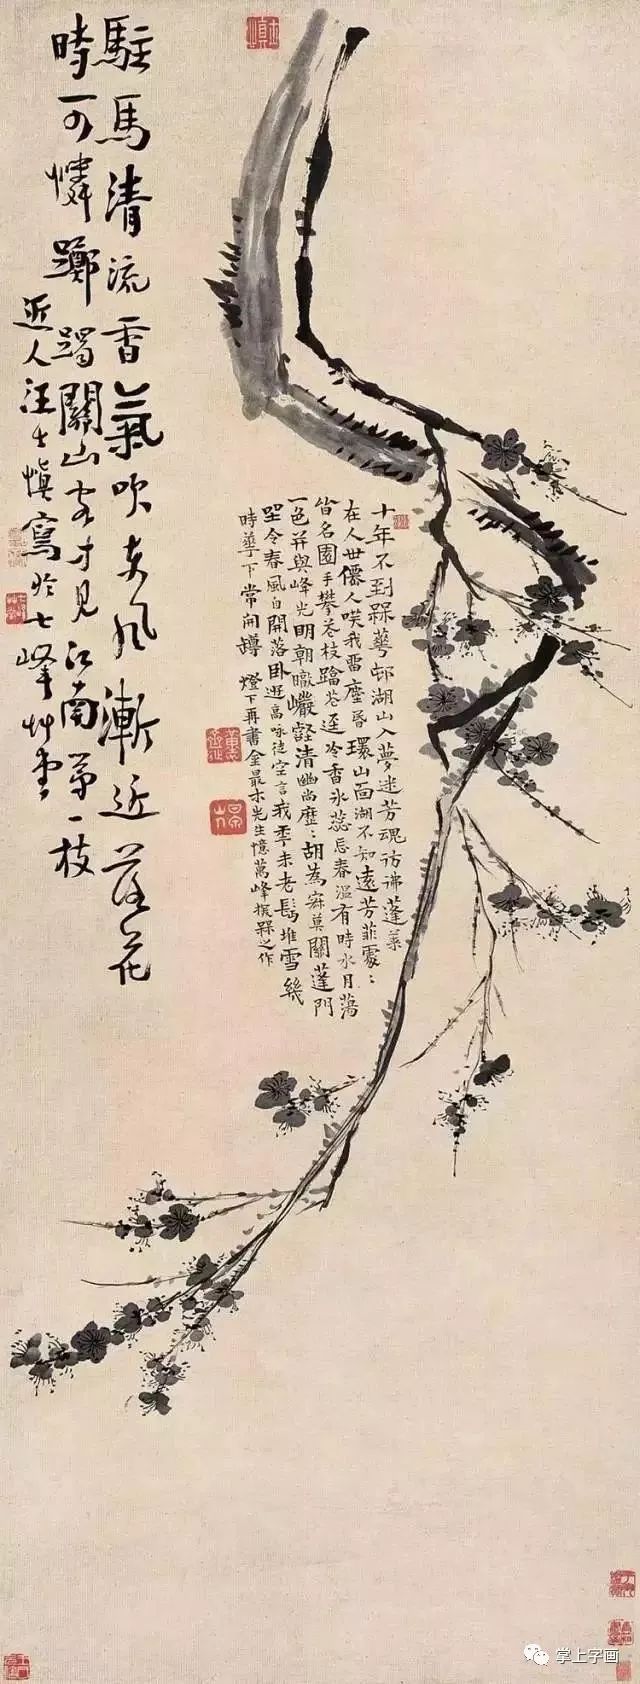 駐馬清流香氣吹東風漸近落花
時可憐躑躅關山客才見江南第一枝
近人汪士慎寫於七峰草堂
十年不到槑華邨湖山入夢迷芳魂彷彿蓬萊
在人世僊人嘆我留塵昏環山面湖不知遠芳菲處：
皆名園手攀花枝蹋花逕冷香氷蕊忘春溫有時水月蕩
一色并與峰光明朝暾巖壑清幽尚歷：胡為寂莫關蓬門
坐令春風自開落臥遊高咏徒空言我年未老髩堆雪幾
時華下常開罇 燈下再書最木先生憶萬峰探槑之作
掌上字画